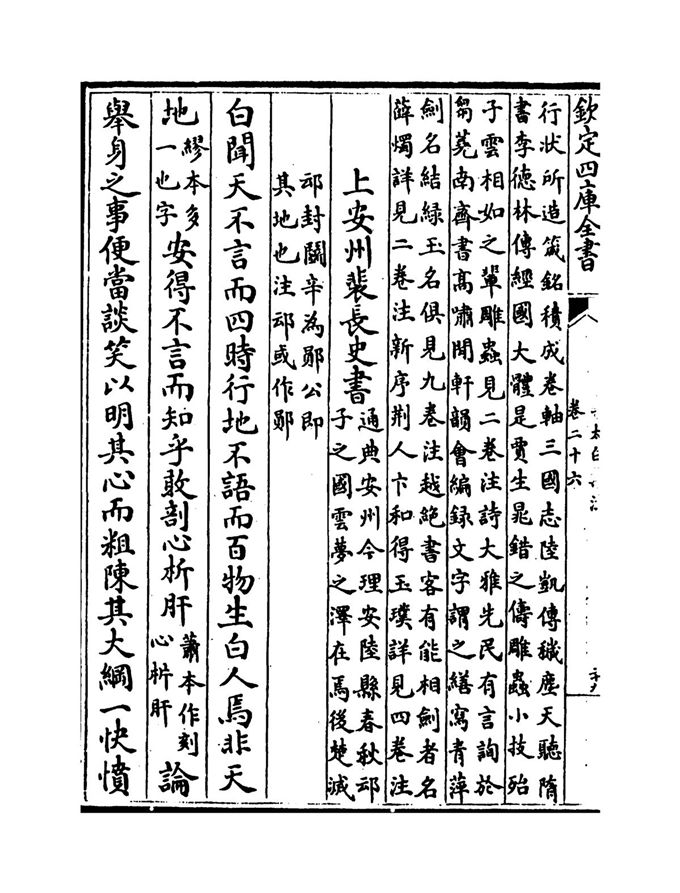 欽定四庫全書
卷二十六
行狀所造箴銘積成卷軸三國志陸凱傳穢塵天聽隋
書李德林傳經國大體是賈生晁錯之儔雕蟲小技殆
子雲相如之輩雕蟲見二卷注詩大雅先民有言詢於
芻蕘南齊書高嘯聞軒韻會編録文字謂之繕寫青萍
劍名結綠玉名俱見九卷注越絶書客有能相劍者名
薛燭詳見二卷注新序荆人卞和得玉璞詳見四卷注
上安州裴長史書
通典安州今理安陸縣春秋䢵
子之國雲夢之澤在焉後楚滅
䢵封鬬辛為鄖公即
其地也注䢵或作鄖
白聞天不言而四時行地不語而百物生白人焉非天
地
繆本多
一也字
安得不言而知乎敢剖心析肝
蕭本作刻
心析肝
論
舉身之事便當談笑以明其心而粗陳其大綱一快憤